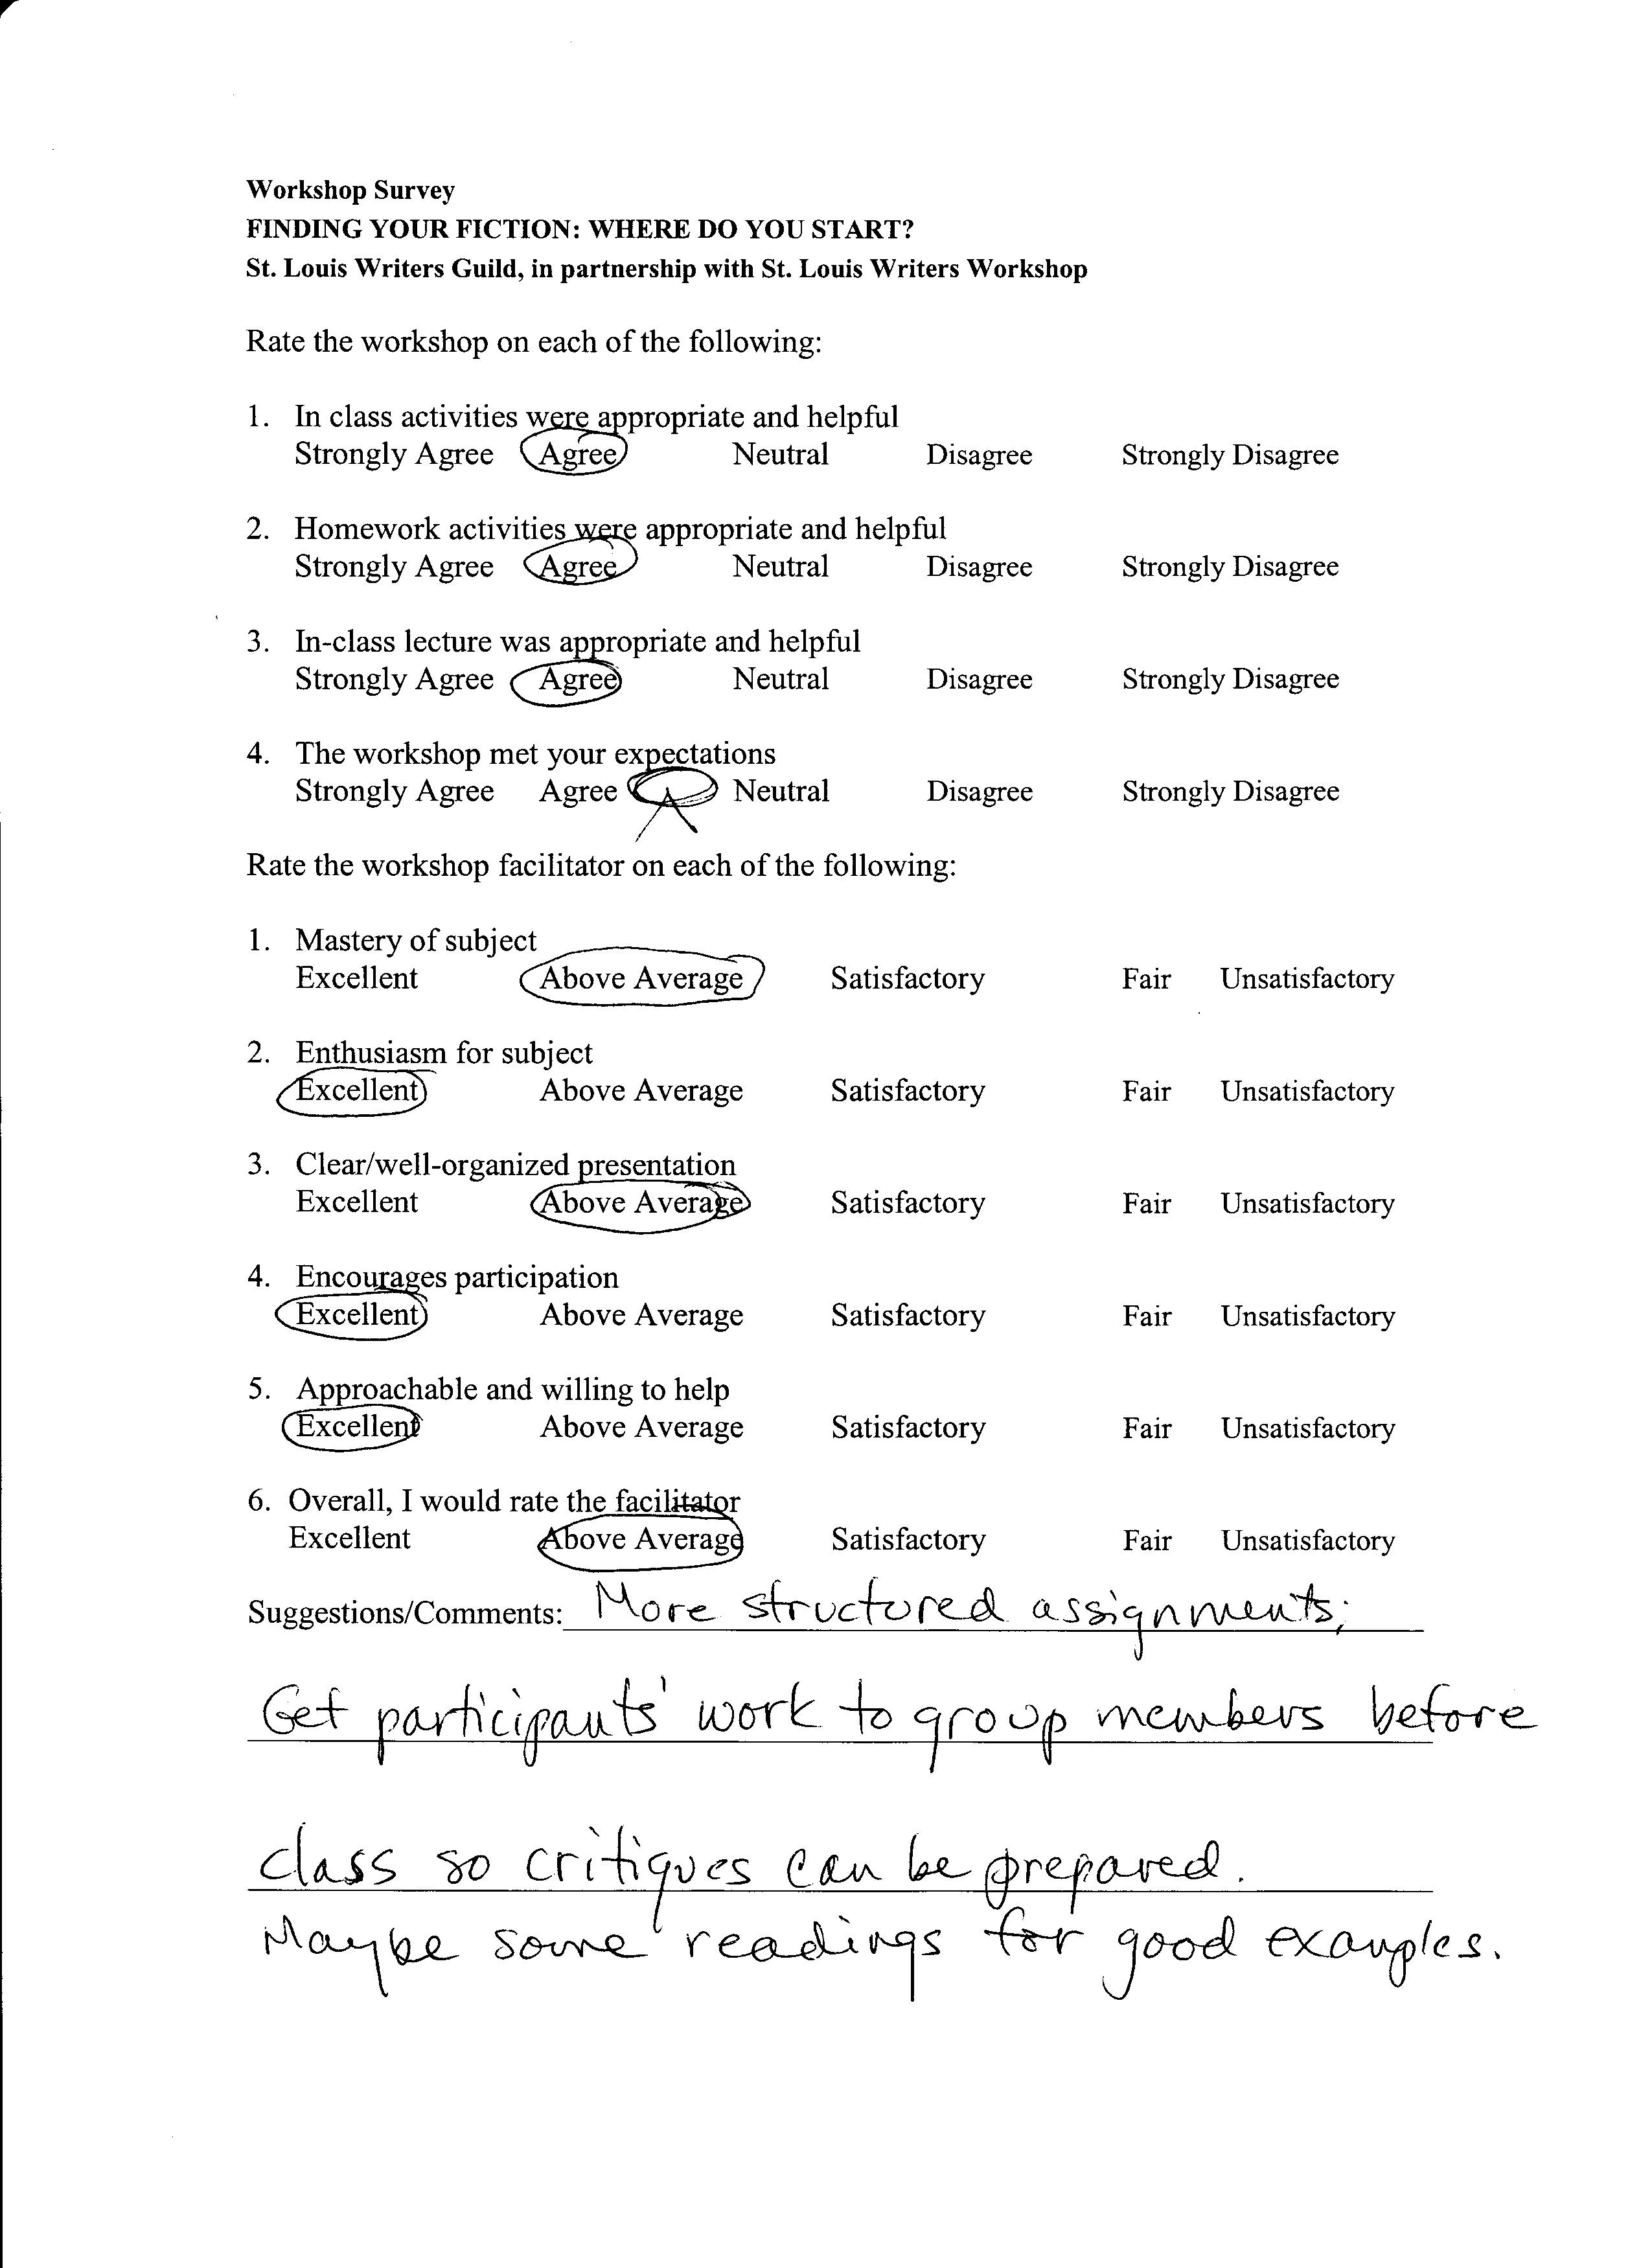 Workshop Survey
FINDING YOUR FICTION: WHERE DO YOU START?
St. Louis Writers Guild, in partnership with St. Louis Writers Workshop
Rate the workshop on each of the following:
1. In class activities were appropriate and helpful
Strongly Agree Agree Neutral Disagree Strongly Disagree
2. Homework activities were appropriate and helpful
Strongly Agree Agree Neutral Disagree Strongly Disagree
3. In-class lecture was appropriate and helpful
Strongly Agree Agree Neutral Disagree Strongly Disagree
4. The workshop met your expectations
Strongly Agree Agree Neutral Disagree Strongly Disagree
Rate the workshop facilitator on each of the following:
1. Mastery of subject
Excellent Above Average Satisfactory Fair Unsatisfactory
2. Enthusiasm for subject
Excellent Above Average Satisfactory Fair Unsatisfactory
3. Clear/well-organized presentation
Excellent Above Average Satisfactory Fair Unsatisfactory
4. Encourages participation
Excellent Above Average Satisfactory Fair Unsatisfactory
5. Approachable and willing to help
Excellent Above Average Satisfactory Fair Unsatisfactory
6. Overall, I would rate the facilitator
Excellent Above Average Satisfactory Fair Unsatisfactory
Suggestions/Comments: More structured assignments;
Get participants' work to group members before
class so critiques can be prepared.
Maybe some readings for good examples.